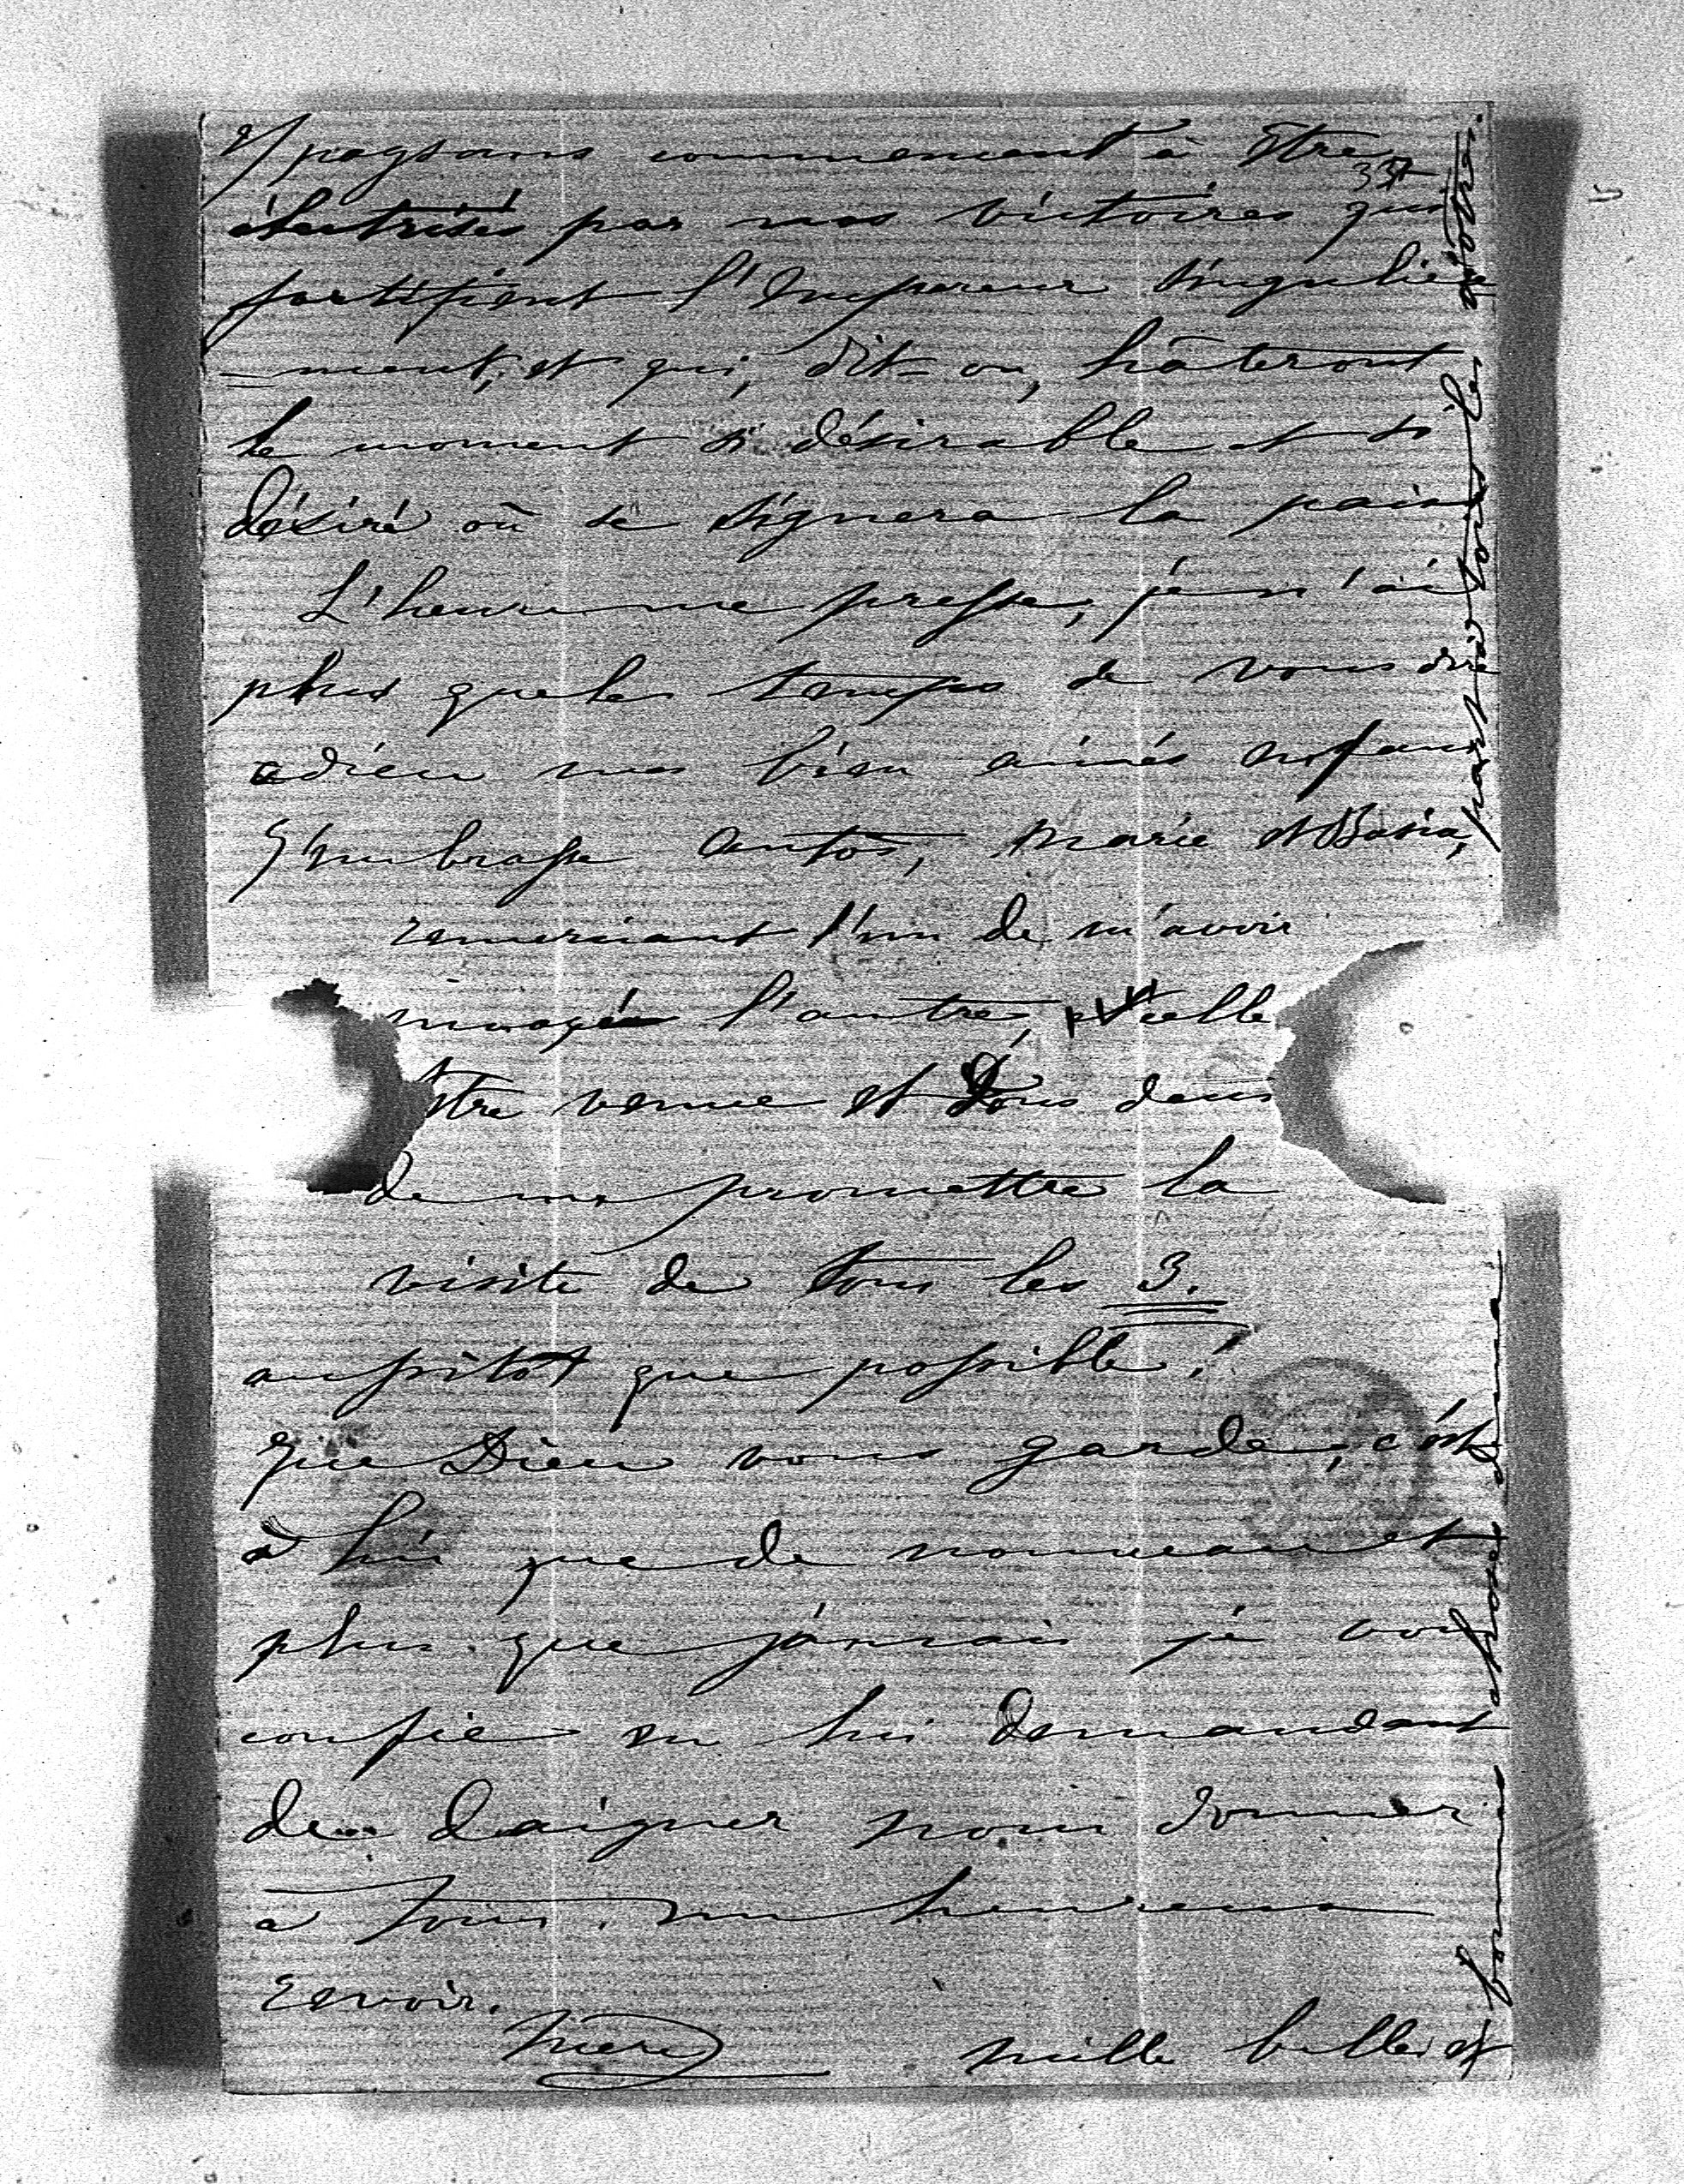 paysans commencent à être
337
électrisés par nos victoires qui
fortifient l'Empereur singulière
=ment; et qui, dit-on, hâteront
le moment si désirable et si
désiré où se signera la paix
L'heure me presse, je n'ai
plus que le temps de vous dire
adieu mes bien aimés enfans
J'embrasse Antos, Marie et Basia,
remerciant l'un de m'avoir
l'autre,
être venue et tous deux
de me promettre la
visite de tous les 3.
aussitôt que possible!
Que Dieu vous garde, c'est
à lui que de nouveau et
plus que jamais je vous
confie en lui demandant
de daigner nous donner
à tous un heureux
revoir.
mère
mille belles et
bonnes choses de ma
part à tous les
vôtres.